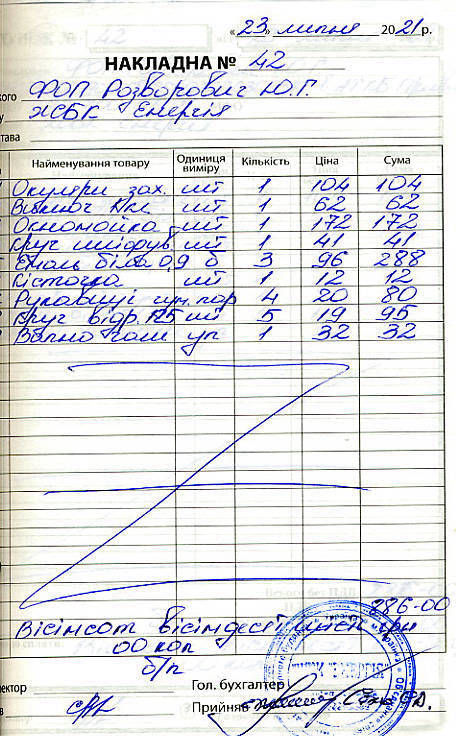 « 23 » липня 2021 р.
НАКЛАДНА № 42
кого ФОП Розворович Ю.Г.
у ЖСБК Енергія
става
Найменування товару Одиниця виміру Кількість Ціна Сума
Окуляри зах. шт 1 104 104
шт 1 62 62
Окномойка шт 1 172 172
Круг шліфув. шт 1 41 41
Емаль біла 0,9 б 3 96 288
Кісточка шт 1 12 12
Рукавиці пар 4 20 80
Круг відр. 125 шт 5 19 95
Вапно гаш уп 1 32 32
886-00
Вісімсот вісімдесят шість грн
00 коп
б/п
ректор Гол. бухгалтер
в Прийняв